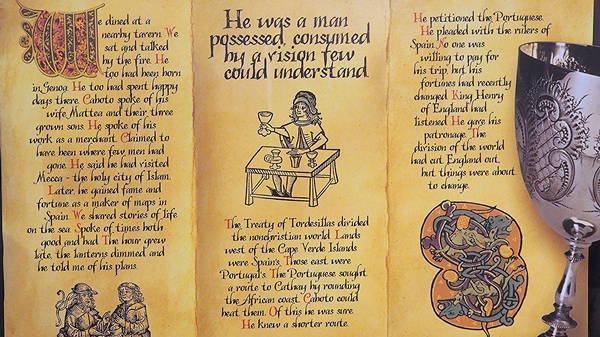 We dined at a
nearby tavern. We
sat and talked
by the fire. He
too had been born
in Genoa. He too had spent happy
days there. Caboto spoke of his
wife, Mattea and their three
grown sons. He spoke of his
work as a merchant. Claimed to
have been where few men had
gone. He said he had visited
Mecca - the holy city of Islam.
Later, he gained fame and
fortune as a maker of maps in
Spain. We shared stories of life
on the sea. Spoke of times both
good and bad. The hour grew
late, the lanterns dimmed and
he told me of his plans.
He was a man
possessed, consumed
by a vision few
could understand.
The Treaty of Tordesillas divided
the nonchristian world. Lands
west of the Cape Verde Islands
were Spain's. Those east were
Portugal's. The Portuguese sought
a route to Cathay by rounding
the African coast. Caboto could
beat them. Of this he was sure.
He knew a shorter route.
He petitioned the Portuguese.
He pleaded with the rulers of
Spain. No one was
willing to pay for
his trip, but his
fortunes had recently
changed. King Henry
of England had
listened. He gave his
patronage. The
division of the world
had cut England out,
but things were about
to change.